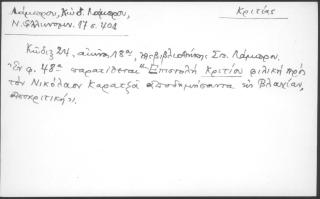 Λάμπρου, Κώδ. Λάμπρου, Κριτίας
Ν. Ἑλληνομν. 17 σ. 401
Κῶδιξ 24. αἰῶνος 18ου, τῆς βιβλιοθήκης Σπ. Λάμπρου.
Ἐν φ. 48α παρατίθεται "Ἐπιστολὴ Κριτίου φιλικὴ πρὸς
τὸν Νικόλαον Καρατζᾶ ἀποδημήσαντα ἐν Βλαχίᾳ,
ἀποκριτική".